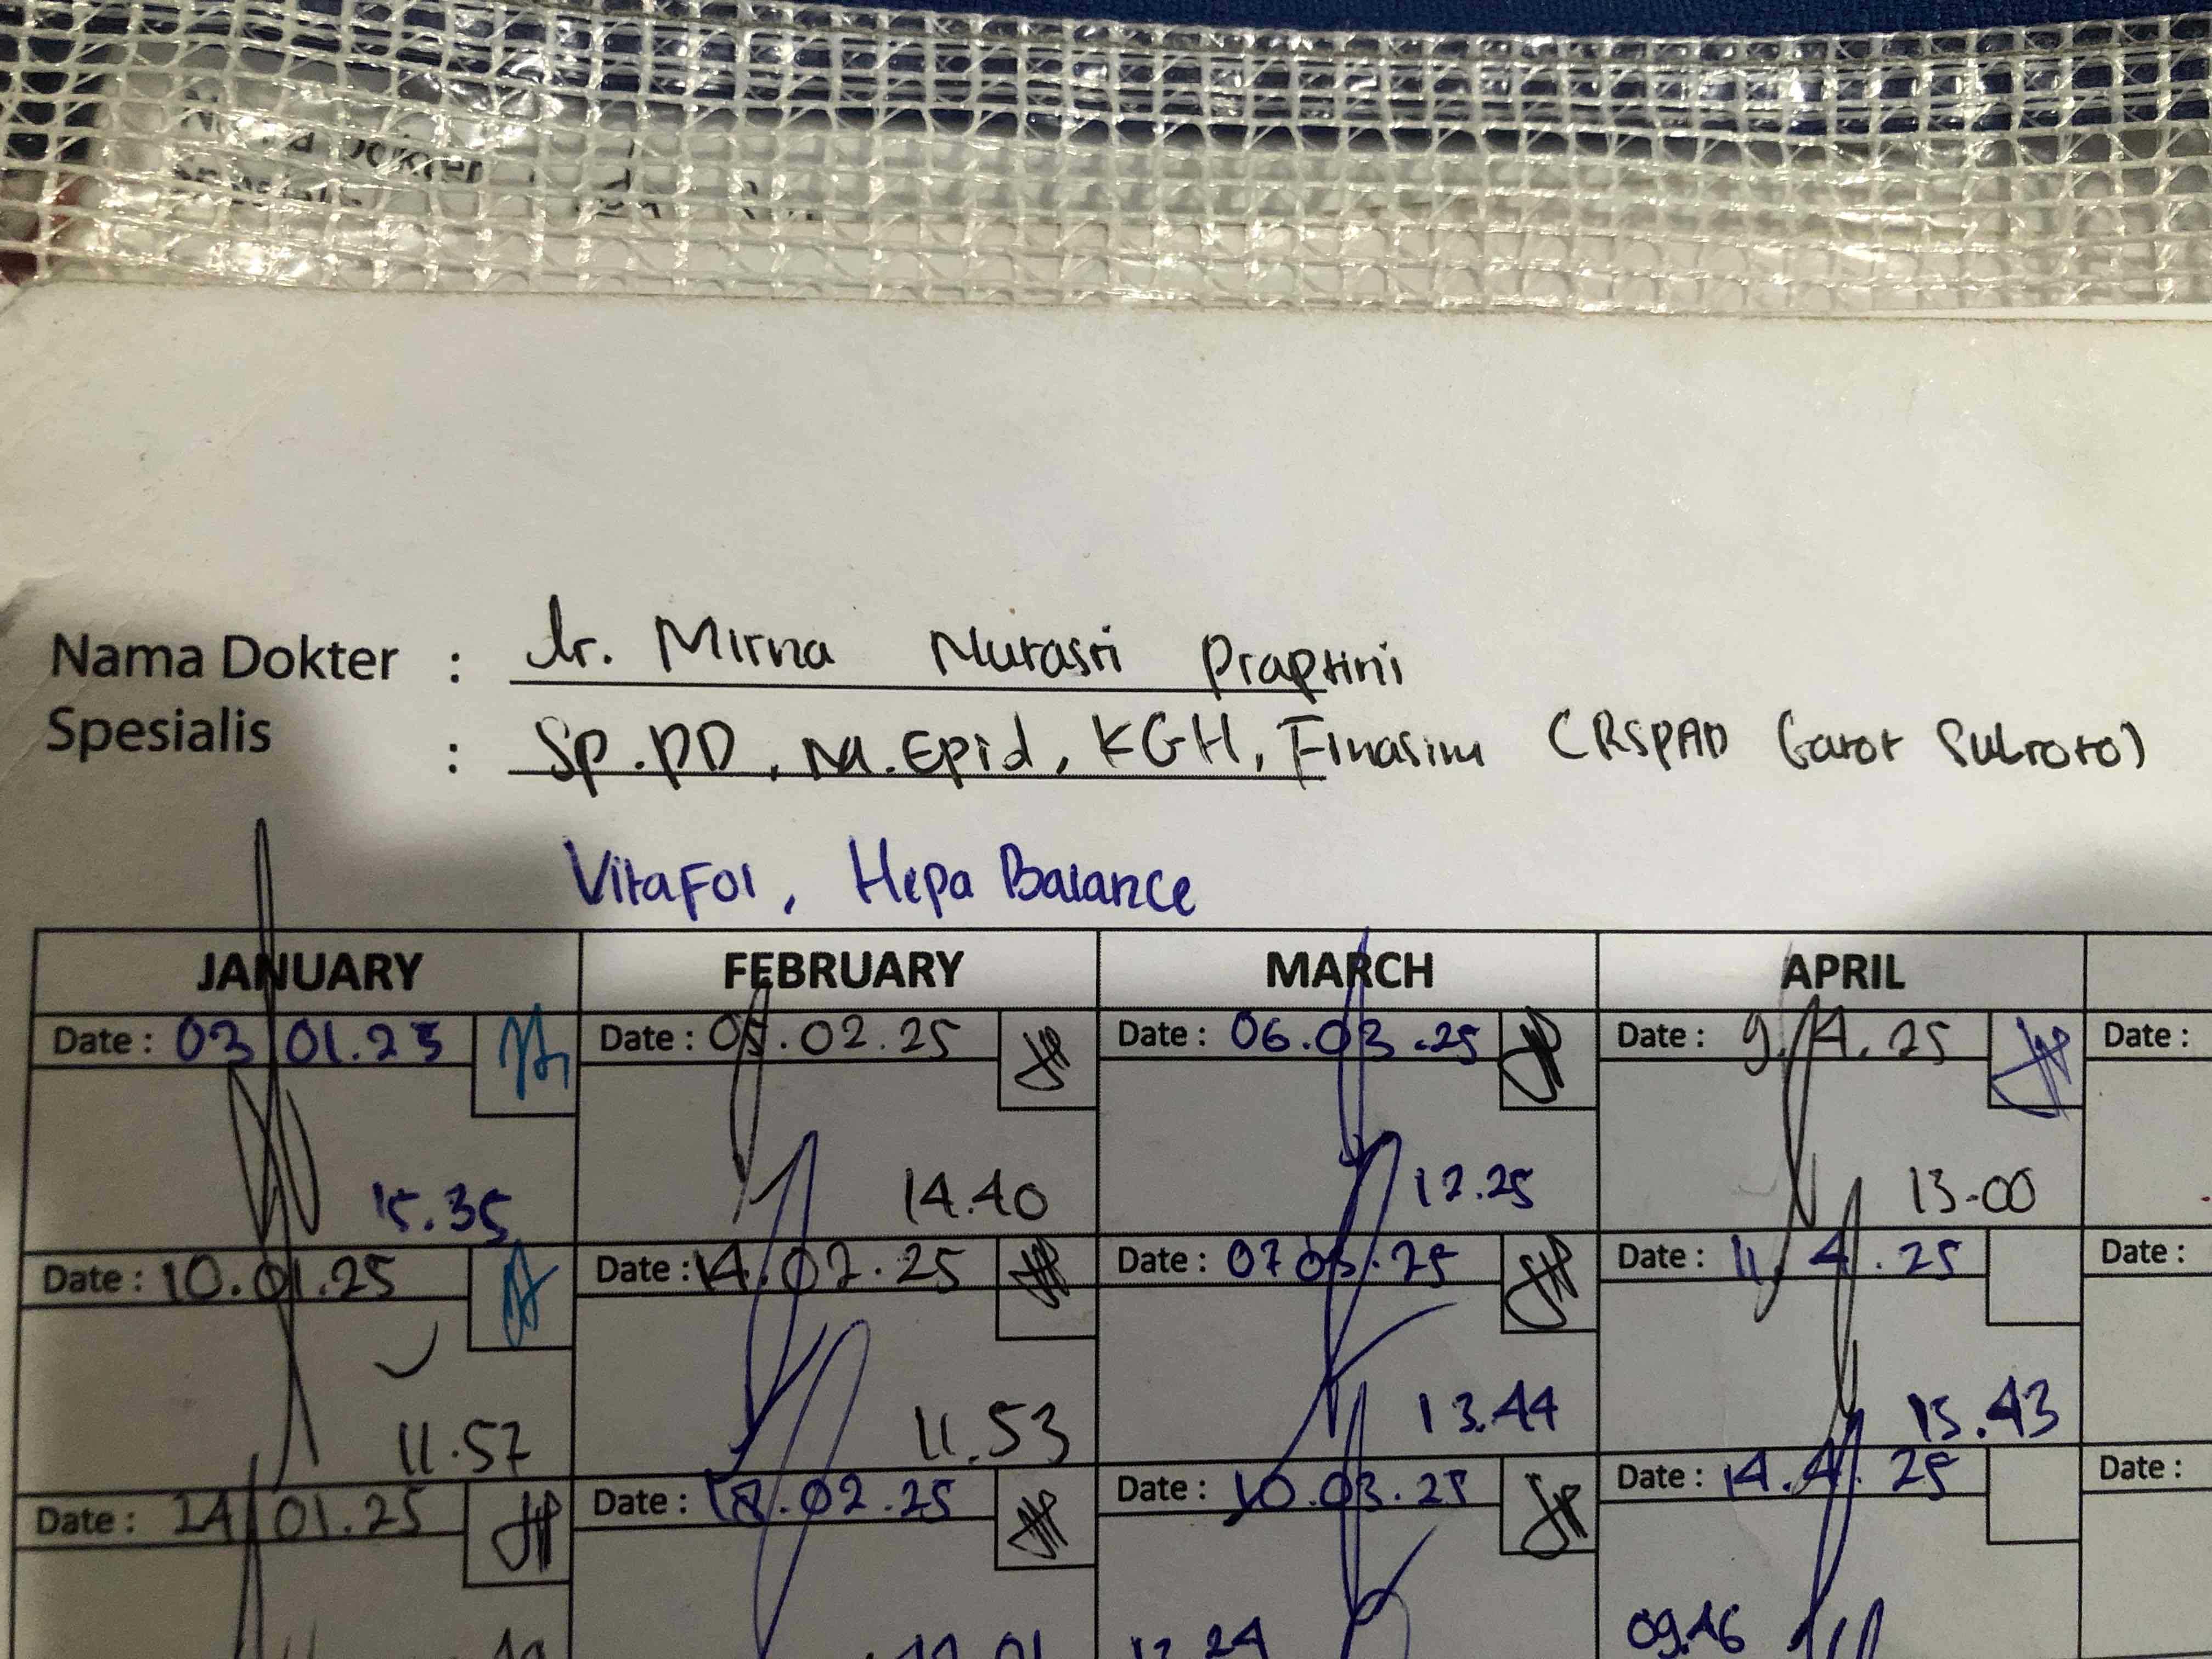 Nama Dokter
Nama Dokter : dr. Mirna Nurasri Praptini
Spesialis : Sp.PD, M.Epid, KGH, Finasim (RSPAD Gatot Subroto)
VitaFol, Hepa Balance
JANUARY FEBRUARY MARCH APRIL
Date : 03 01.25 Date : 05.02.25 Date : 06.03.25 Date : 9.4.25 Date :
15.35 14.40 12.25 13-00
Date : 10.01.25 Date : 14.02.25 Date : 07 03.25 Date : 11.4.25 Date :
11.57 11.53 13.44 15.43
Date : 24 01.25 Date : 18.02.25 Date : 10.03.25 Date : 14.4.25 Date :
09.46